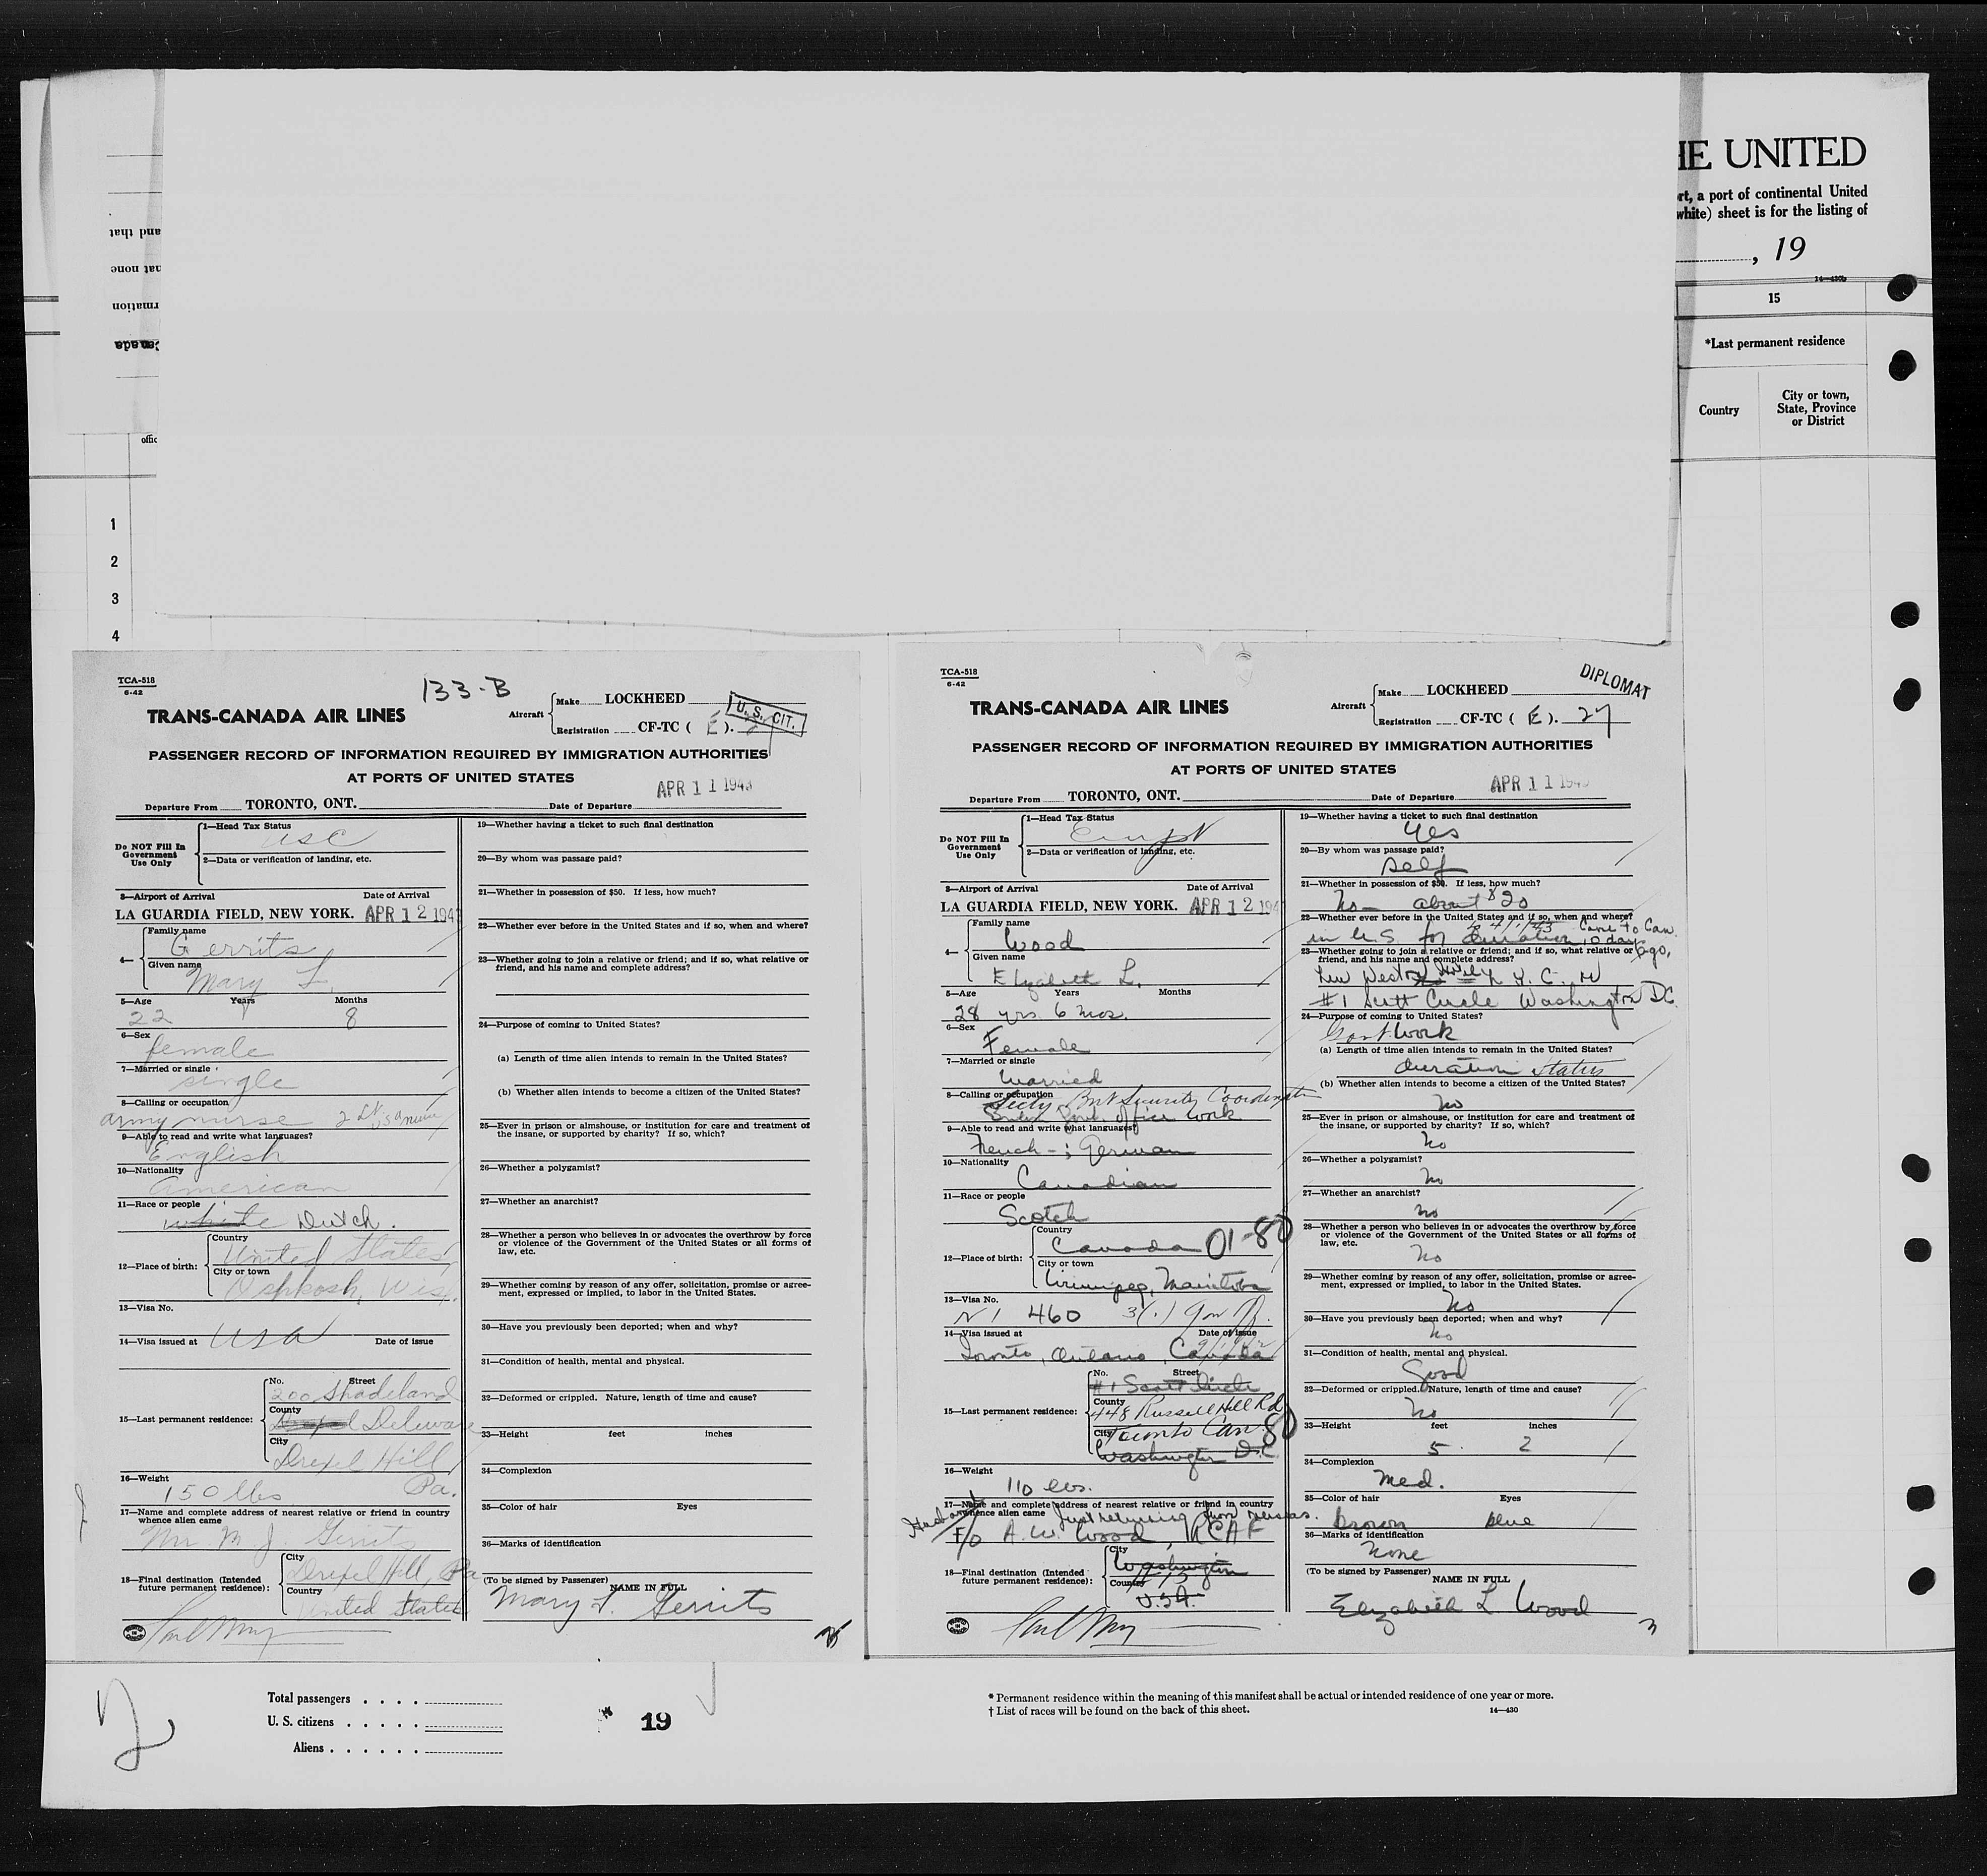 HE UNITED
rt, a port of continental United
white) sheet is for the listing of
, 19
14—430b
15
*Last permanent residence
Country
City or town,
State, Province
or District
and that
hat none
rmation
Canada
offic
1
2
3
4
TCA-518
6-42
133-B
TRANS-CANADA AIR LINES
Aircraft
Make LOCKHEED
Registration CF-TC ( E ). 27
U. S. CIT.
PASSENGER RECORD OF INFORMATION REQUIRED BY IMMIGRATION AUTHORITIES
AT PORTS OF UNITED STATES
APR 11 1943
Departure From TORONTO, ONT. Date of Departure
Do NOT Fill In
Government
Use Only
1—Head Tax Status
USC
2—Data or verification of landing, etc.
3—Airport of Arrival Date of Arrival
LA GUARDIA FIELD, NEW YORK. APR 12 194
4—
Family name
Gerrits
Given name
Mary L.
5—Age Years Months
22 8
6—Sex
female
7—Married or single
single
8—Calling or occupation
army nurse 2 Lt
9—Able to read and write what languages?
English
10—Nationality
American
11—Race or people
white Dutch.
12—Place of birth:
Country
United States
City or town
Oshkosh, Wis.
13—Visa No.
14—Visa issued at USA Date of issue
15—Last permanent residence:
No. Street
200 Shadeland
County
Drexel Delaware
City
Drexel Hill
Pa.
16—Weight
150 lbs
17—Name and complete address of nearest relative or friend in country
whence alien came
Mr. M. J. Gerrits
18—Final destination (Intended
future permanent residence):
City
Drexel Hill, Pa
Country
United States
19—Whether having a ticket to such final destination
20—By whom was passage paid?
21—Whether in possession of $50. If less, how much?
22—Whether ever before in the United States and if so, when and where?
23—Whether going to join a relative or friend; and if so, what relative or
friend, and his name and complete address?
24—Purpose of coming to United States?
(a) Length of time alien intends to remain in the United States?
(b) Whether alien intends to become a citizen of the United States?
25—Ever in prison or almshouse, or institution for care and treatment of
the insane, or supported by charity? If so, which?
26—Whether a polygamist?
27—Whether an anarchist?
28—Whether a person who believes in or advocates the overthrow by force
or violence of the Government of the United States or all forms of
law, etc.
29—Whether coming by reason of any offer, solicitation, promise or agree-
ment, expressed or implied, to labor in the United States.
30—Have you previously been deported; when and why?
31—Condition of health, mental and physical.
32—Deformed or crippled. Nature, length of time and cause?
33—Height feet inches
34—Complexion
35—Color of hair Eyes
36—Marks of identification
(To be signed by Passenger) NAME IN FULL
Mary L. Gerrits
TCA-518
6-42
TRANS-CANADA AIR LINES
Aircraft
Make LOCKHEED
Registration CF-TC ( E ). 27
DIPLOMAT
PASSENGER RECORD OF INFORMATION REQUIRED BY IMMIGRATION AUTHORITIES
AT PORTS OF UNITED STATES
APR 11 194
Departure From TORONTO, ONT. Date of Departure
Do NOT Fill In
Government
Use Only
1—Head Tax Status
2—Data or verification of landing, etc.
3—Airport of Arrival Date of Arrival
LA GUARDIA FIELD, NEW YORK. APR 12 194
4—
Family name
Wood
Given name
Elizabeth L.
5—Age Years Months
28 yrs. 6 mos.
6—Sex
Female
7—Married or single
Married
8—Calling or occupation
Secty Brit Security Coordination
office work
9—Able to read and write what languages?
French - ; German
10—Nationality
Canadian
11—Race or people
Scotch
12—Place of birth:
Country
Canada 01-80
City or town
Winnipeg, Manitoba
13—Visa No.
460 3(.)
14—Visa issued at Date of issue
Toronto, Ontario, Canada
15—Last permanent residence:
No. Street
#1 Scott Circle
County
448 Russell Hill Rd
City
Toronto Can. 80
Washington D.C.
16—Weight
110 lbs.
17—Name and complete address of nearest relative or friend in country
whence alien came Just returning from
Husband
F/O A. W. Wood, RCAF
18—Final destination (Intended
future permanent residence):
City
Washington
Country
U.S.A.
19—Whether having a ticket to such final destination
Yes
20—By whom was passage paid?
Self
21—Whether in possession of $50. If less, how much?
No — about $20
22—Whether ever before in the United States and if so, when and where?
to 4/1/43 Came to Can.
in U.S. for duration, 10 days ago,
23—Whether going to join a relative or friend; and if so, what relative or
friend, and his name and complete address?
#1 Scott Circle Washington D.C.
24—Purpose of coming to United States?
Govt Work
(a) Length of time alien intends to remain in the United States?
duration status
(b) Whether alien intends to become a citizen of the United States?
No
25—Ever in prison or almshouse, or institution for care and treatment of
the insane, or supported by charity? If so, which?
No
26—Whether a polygamist?
No
27—Whether an anarchist?
No
28—Whether a person who believes in or advocates the overthrow by force
or violence of the Government of the United States or all forms of
law, etc.
No
29—Whether coming by reason of any offer, solicitation, promise or agree-
ment, expressed or implied, to labor in the United States.
No
30—Have you previously been deported; when and why?
No
31—Condition of health, mental and physical.
Good
32—Deformed or crippled. Nature, length of time and cause?
No
33—Height feet inches
5 2
34—Complexion
Med.
35—Color of hair Eyes
brown blue
36—Marks of identification
None
(To be signed by Passenger) NAME IN FULL
Elizabeth L. Wood
2
Total passengers
U. S. citizens
Aliens
19
* Permanent residence within the meaning of this manifest shall be actual or intended residence of one year or more.
† List of races will be found on the back of this sheet.
14—430